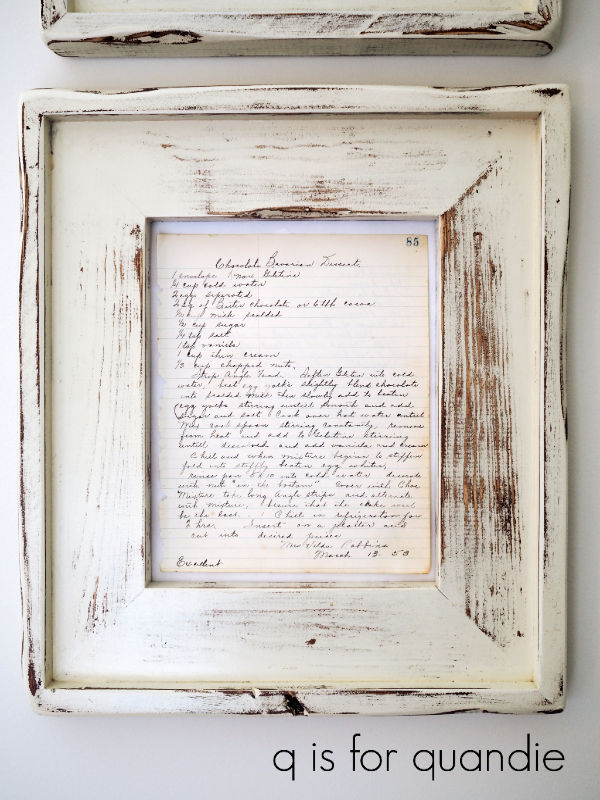 85
Chocolate Bavarian Dessert.
1 envelope Knox Gelitine
cup cold water
2 eggs seperated
2 sq of Bitter chocolate or 6 tbb cocoa
milk scalded
1/2 cup sugar
1/4 tsp salt
1 tsp vanilla
1 cup thin cream
1/3 cup chopped nuts,
Strip Angle Food. Soften Gelitin into cold
water, beat egg yolks slightly blend chocolate
into scalded milk then slowly add to beaten
egg yolks stirring until smooth and add
sugar and salt Cook over hot water untill
Mix coat spoon stirring constantly, remove
from heat and add to Gelitine stirring
untill desolved and add vanilla and cream
Chill and when mixture begins to stiffen
fold into stiffly beaten egg whites,
rinse pan 5 x 10 into cold water decorate
with nut "in the bottom" Cover with Choc
Mixture top long Angle strips and alternate
with mixture, being that the cake will
be the last. Chill in refrigerator for
2 hrs. Insert on a platter and
cut into desired pieces
Mrs Velda Robbins
March 13. 53
Excellent
q is for quandie